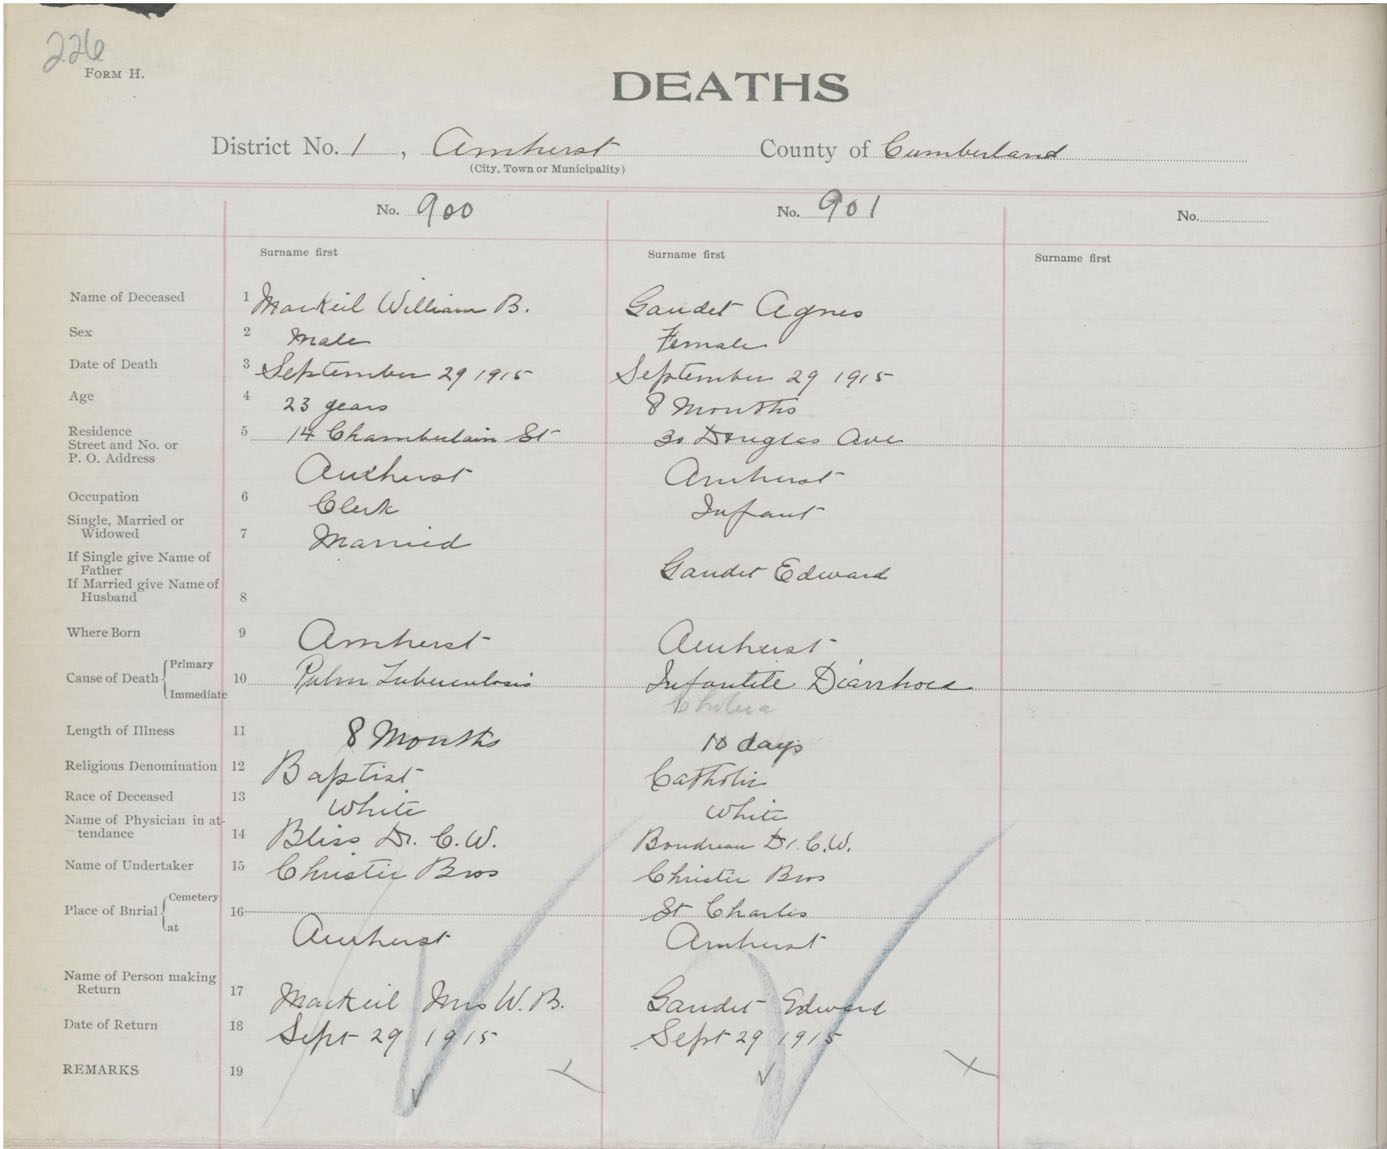 226
FORM H.
DEATHS
District No. 1, Amherst County of Cumberland
(City, Town or Municipality)
No. 900 No. 901 No.
Surname first Surname first Surname first
Name of Deceased 1 MacKeil William B. Gaudet Agnes
Sex 2 Male Female
Date of Death 3 September 29 1915 September 29 1915
Age 4 23 years 8 Months
Residence
Street and No. or 5 14 Chamberlain St 30 Douglas Ave
P. O. Address
Amherst Amherst
Occupation 6 Clerk Infant
Single, Married or
Widowed 7 Married
If Single give Name of
Father Gaudet Edward
If Married give Name of
Husband 8
Where Born 9 Amherst Amherst
Cause of Death Primary 10 Pulm Tuberculosis Infantile Diarrhoea
Immediate Cholera
Length of Illness 11 8 Months 10 days
Religious Denomination 12 Baptist Catholic
Race of Deceased 13 White White
Name of Physician in at-
tendance 14 Bliss Dr. C.W. Boudreau Dr. C.W.
Name of Undertaker 15 Christie Bros Christie Bros
Place of Burial Cemetery 16 St Charles
at Amherst Amherst
Name of Person making
Return 17 MacKeil Mrs W. B. Gaudet Edward
Date of Return 18 Sept 29 1915 Sept 29 1915
REMARKS 19